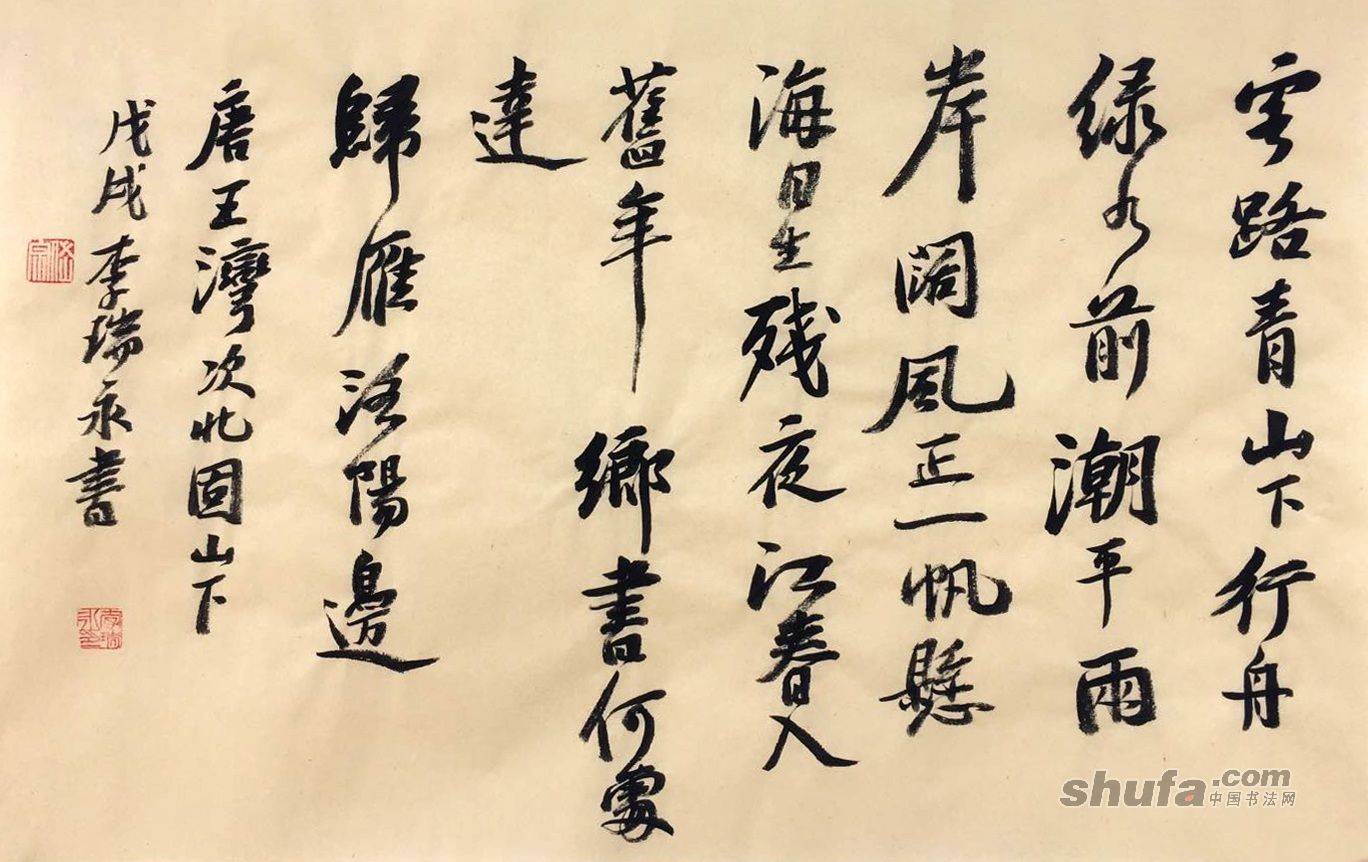 客路青山下行舟
绿水前潮平兩
岸阔風正一帆懸
海日生残夜江春入
舊年鄉書何處
達
歸雁洛陽邊
唐王灣次北固山下
戊戌李瑞永書
shufa.com
中国书法网